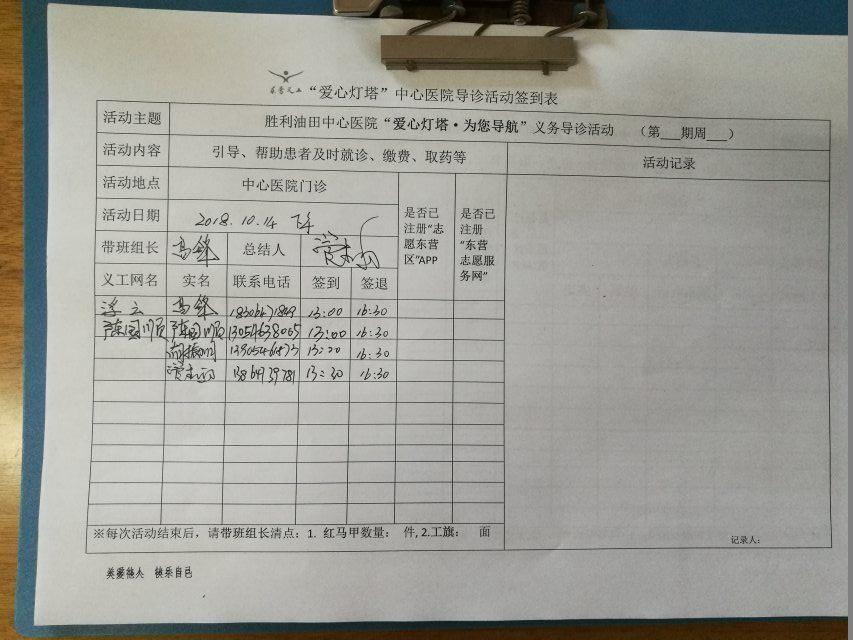 东营义工
“爱心灯塔”中心医院导诊活动签到表
活动主题 胜利油田中心医院“爱心灯塔·为您导航”义务导诊活动 （第___期周___）
活动内容 引导、帮助患者及时就诊、缴费、取药等 活动记录
活动地点 中心医院门诊 是否已注册“志愿东营区”APP 是否已注册“东营志愿服务网”
活动日期 2018.10.14 下午
带班组长 高锋 总结人
义工网名 实名 联系电话 签到 签退
浮云 高锋 13:00 16:30
陈国顺 陈国顺 13054638065 13:00 16:30
13:20 16:30
13:30 16:30
※每次活动结束后，请带班组长清点：1. 红马甲数量： 件, 2.工旗： 面
记录人：
关爱他人 快乐自己